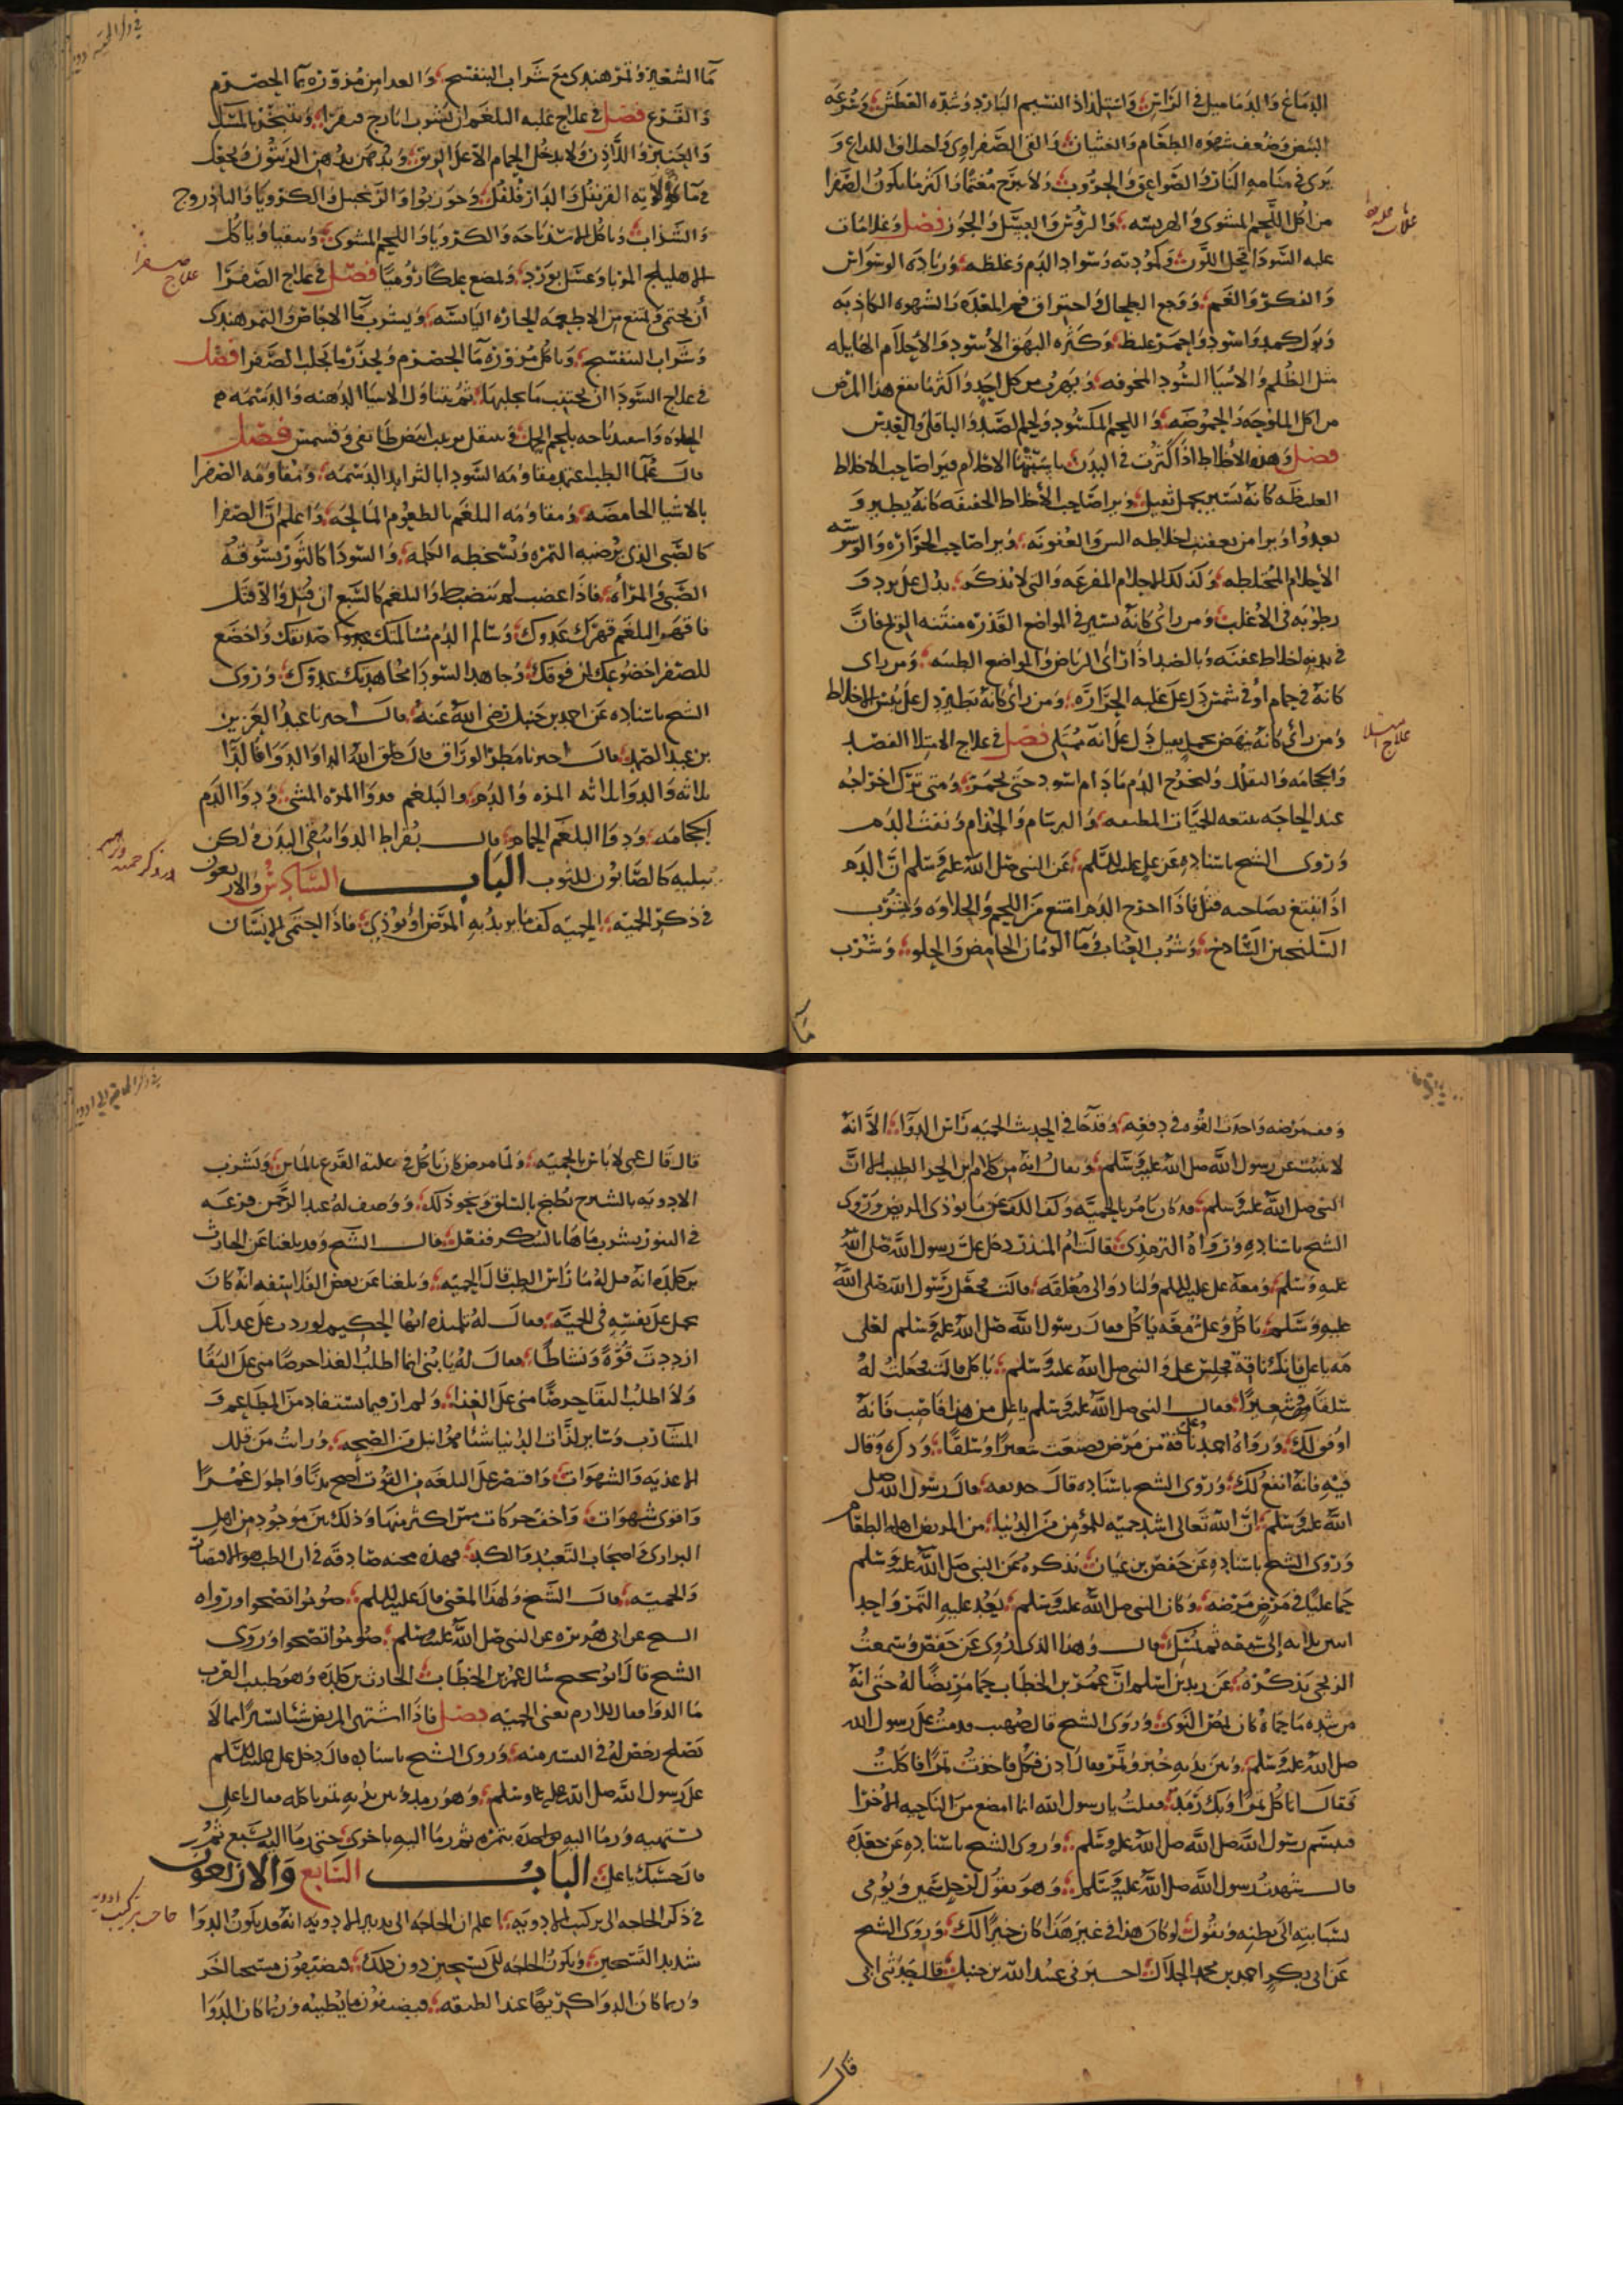 الدماغ والدماميل في الراس واستلذاذ النسيم البارد وشده العطش وسرعه
النبض وضعف شهوه الطعام والغشيان والقي الصفراوي واختلاف اللداع و
يرى في منامه النار والصواعق والحروب ولا يبرح مغتما واكثر ما يكون الصفرا
من اكل اللحم المشوي والهريسه والروس والعسل والجوز فصل وعلامات
غلبه السودا قحل اللون وكمودته وسواد الدم وغلظه وزياده الوسواس
والفكر والغم ووجع الطحال واحتراق فم المعده والشهوه الكاذبه
وبول كمد واسود واحمر غليظ وكثره البهق الاسود والاحلام الهايله
مثل الظلم والاشيا السود المخوفه ويهرب من كل احد واكثر ما يقع هذا المرض
من اكل الملوحه والحموضه واللحم المكسود ولحم الصيد والباقلى والعدس
فصل وهذه الاخلاط اذا كثرت في البدن ناسبتها الاحلام فيرا صاحب الاخلاط
الغليظه كانه يسير بحمل ثقيل ويرا صاحب الاخلاط الخفيفه كانه يطير و
يعدوا ويرا من تعفنت اخلاطه النتن والعفونه ويرا صاحب الحراره والوسوسه
الاحلام المختلطه وكذلك الاحلام المفزعه والتي لا تذكر يدل على برد و
رطوبه في الاغلب ومن راى كانه يسير في المواضع القذره منتنه الريح فان
في بدنه اخلاط عفنه وبالضد اذا راى الرياض والمواضع الطيبه ومن راى
كانه في حمام او في شمس دل على غلبه الحراره ومن راى كانه يطير دل على يبس الاخلاط
ومن راى كانه ينهض بحمل ثقيل دل على انه ممتلي فصل في علاج الامتلا الفصد
والحجامه والتقلل وليخرج الدم مادام اسود حتى يحمر ومتى ترك اخراجه
عند الحاجه تبعه الحميات المطبقه والبرسام والجذام ونفث الدم
وروى الشيخ باسناده عن علي عليه السلم عن النبي صلى الله عليه وسلم ان الدم
اذا تبيغ بصاحبه قتل فاذا اخرج الدم امتنع من اللحم والحلاوه وليشرب
السكنجبين السادج وشرب العناب وما الرمان الحامض والحلو وشرب
علاج امتلا
مآء
ما الشعير وتمر هندي مع شراب البنفسج والغدا من مزوره بما الحصرم
والقرع فصل في علاج غلبه البلغم ان يشرب ايارج فيقرا ويتبخر بالمسك
والعنبر واللاذن ولا يدخل الحمام الا على الريق ويدهن بدهن الزيتون ويجعل
في ماكولاته القرنفل والدارفلفل وجوزبوا والزنجبيل والكرويا والباذروج
والسذاب وياكل الاسفيدباجه والكرويا واللحم المشوي وياكل
الاهليلج المربا وعسل بورد ويمضع علكا روميا فصل في علاج الصفرا
ان يحتمي ويمتنع من الاطعمه الحاره اليابسه ويشرب ما الاجاص والتمر هندي
وشراب البنفسج وياكل مزوره ما الحصرم وليحذر ما يجلب الصفرا فصل
في علاج السودا ان يجتنب ما يجلبها ثم يتناول الاشيا الدهنه والدسمه
الحلوه واسفيدباجه بلحم الحمل ويتنقل بزبيب ابيض طايفي وفستق فصل
قال علما الطب عند مقاومه السودا بالثرايد الدسمه ومقاومه الصفرا
بالاشيا الحامضه ومقاومه البلغم بالطعوم المالحه واعلم ان الصفرا
كالصبي الذي يرضيه التمره وتسخطه الكلمه والسودا كالثور يسوقه
الصبي والمراه فاذا غضب لم ينضبط والبلغم كالسبع ان قتل والا قتل
فاقهر البلغم قهرك عدوك وسالم الدم مسالمتك صديقك واخضع
للصفرا خضوعك لمن فوقك وجاهد السودا مجاهدتك عدوك وروى
الشيخ باسناده عن احمد بن حنبل رضي الله عنه قال اخبرنا عبد العزيز
بن عبد الصمد قال اخبرنا مطر الوراق قال خلق الله الدا والدوا فالدا
ثلاثه والدوا ثلاثه المره والدم والبلغم فدوا المره المشي ودوا الدم
الحجامه ودوا البلغم الحمام قال بقراط الدوا ينقي البدن ولكن
يبليه كالصابون للثوب الباب السادس والاربعون
في ذكر الحميه الحميه كف ما يزيد به المرض او يوذي فاذا احتمى الانسان
علاج صفرا
وقف مرضه واخذت القوه في دفعه وقد جا في الحديث الحميه راس الدوا الا انه
لا يثبت عن رسول الله صلى الله عليه وسلم ويقال انه من كلام ابن الطبيب الا ان
النبي صلى الله عليه وسلم قد كان يامر بالحميه وكف الكف عن ما يوذي المريض وروى
الشيخ باسناده ورواه الترمذي قالت ام المنذر دخل علي رسول الله صلى الله
عليه وسلم ومعه علي عليه السلم ولنا دوالي معلقه قالت فجعل رسول الله صلى الله
عليه وسلم ياكل وعلي معه ياكل فقال رسول الله صلى الله عليه وسلم لعلي
مه يا علي فانك ناقه فجلس علي والنبي صلى الله عليه وسلم ياكل قالت فجعلت له
سلقا وشعيرا فقال النبي صلى الله عليه وسلم يا علي من هذا فاصب فانه
اوفق لك ورواه احمد ناقه من مرض فصنعت شعيرا وسلقا وذكره وقال
فيه فانه انفع لك وروى الشيخ باسناده قال حذيفه قال رسول الله صلى
الله عليه وسلم ان الله تعالى اشد حميه للمؤمن من الدنيا من المريض اهله الطعام
وروى الشيخ باسناده عن حفص بن غياث يذكره عن النبي صلى الله عليه وسلم
حما عليا في مرض مرضه وكان النبي صلى الله عليه وسلم يعد عليه التمر واحد
اثنين ثلاثه الى سبعه ثم يمسك قال وهذا الذي روي عن حفص وسمعت
الزنجي يذكره عن زيد بن اسلم ان عمر بن الخطاب حما مريضا له حتى انه
من شده ما حماه كان يمص النوى وروى الشيخ قال صهيب قدمت على رسول الله
صلى الله عليه وسلم وبين يديه خبز وتمر فقال ادن فكل فاخذت تمرا فاكلت
فقال اتاكل تمرا وبك رمد فقلت يا رسول الله انما امضغ من الناحيه الاخرا
فتبسم رسول الله صلى الله عليه وسلم وروى الشيخ باسناده عن جعده
قال شهدت رسول الله صلى الله عليه وسلم وهو يقول لرجل سمين ويومي
بسبابته الى بطنه ويقول لو كان هذا في غير هذا كان خيرا لك وروى الشيخ
عن ابي بكر احمد بن محمد الخلال اخبرني عبد الله بن حنبل قال حدثني ابي
قال
قال قال عمي لا باس بالحميه ولما مرض كان ياكل في علته القرع بالماش ويشرب
الادويه بالشيرج يطبخ بالسلق ونحو ذلك ووصف له عبد الرحمن قرعه
في التنور يشرب ماها بالسكر ففعل قال الشيخ وقد بلغنا عن الحارث
بن كلده انه قيل له ما راس الطب قال الحميه وبلغنا عن بعض الفلاسفه انه كان
يحمل على نفسه في الحميه فقال له تلميذه ايها الحكيم لو زدت على غدايك
ازددت قوة ونشاطا فقال له يا بني انما اطلب الغدا حرصا مني على البقا
ولا اطلب البقا حرصا مني على الغذا ولم ار فيما يستفاد من المطاعم و
المشارب وساير لذات الدنيا شيئا هو انبل من الصحه ورايت من قلل
الاغذيه والشهوات واقتصر على البلغه من القوت اصح بدنا واطول عمرا
واقوى شهوات واخف حركات ممن اكثر منها وذلك بين موجود من اهل
البوادي واصحاب التعبد والكد فهذه محنه صادقه في ان الطب هو الاقتصاد
والحميه قال الشيخ ولهذا المعنى قال عليه السلم صوموا تصحوا ورواه
الشيخ عن ابي هريره عن النبي صلى الله عليه وسلم صوموا تصحوا وروى
الشيخ قال ابو نجيح سال عمر بن الخطاب الحارث بن كلده وهو طبيب العرب
ما الدوا فقال الازم يعني الحميه فصل فاذا اشتهى المريض شيئا يسيرا مما لا
تصلح رخص له في اليسير منه وروى الشيخ باسناده قال دخل علي عليه السلم
على رسول الله صلى الله عليه وسلم وهو رمد وبين يديه تمر ياكله فقال يا علي
تشتهيه ورما اليه بتمره ثم رما اليه باخرى حتى رما اليه بسبع ثم
قال حسبك يا علي الباب السابع والاربعون
في ذكر الحاجه الى تركيب الادويه اعلم ان الحاجه الى تدبير الادويه انه قد يكون الدوا
شديد التسخين ويكون الحاجه الى تسخين دون ذلك فيضيفون
وربما كان الدوا كريها عند الطبيعه فيضيفون ما يطيبه وربما كان الدوا